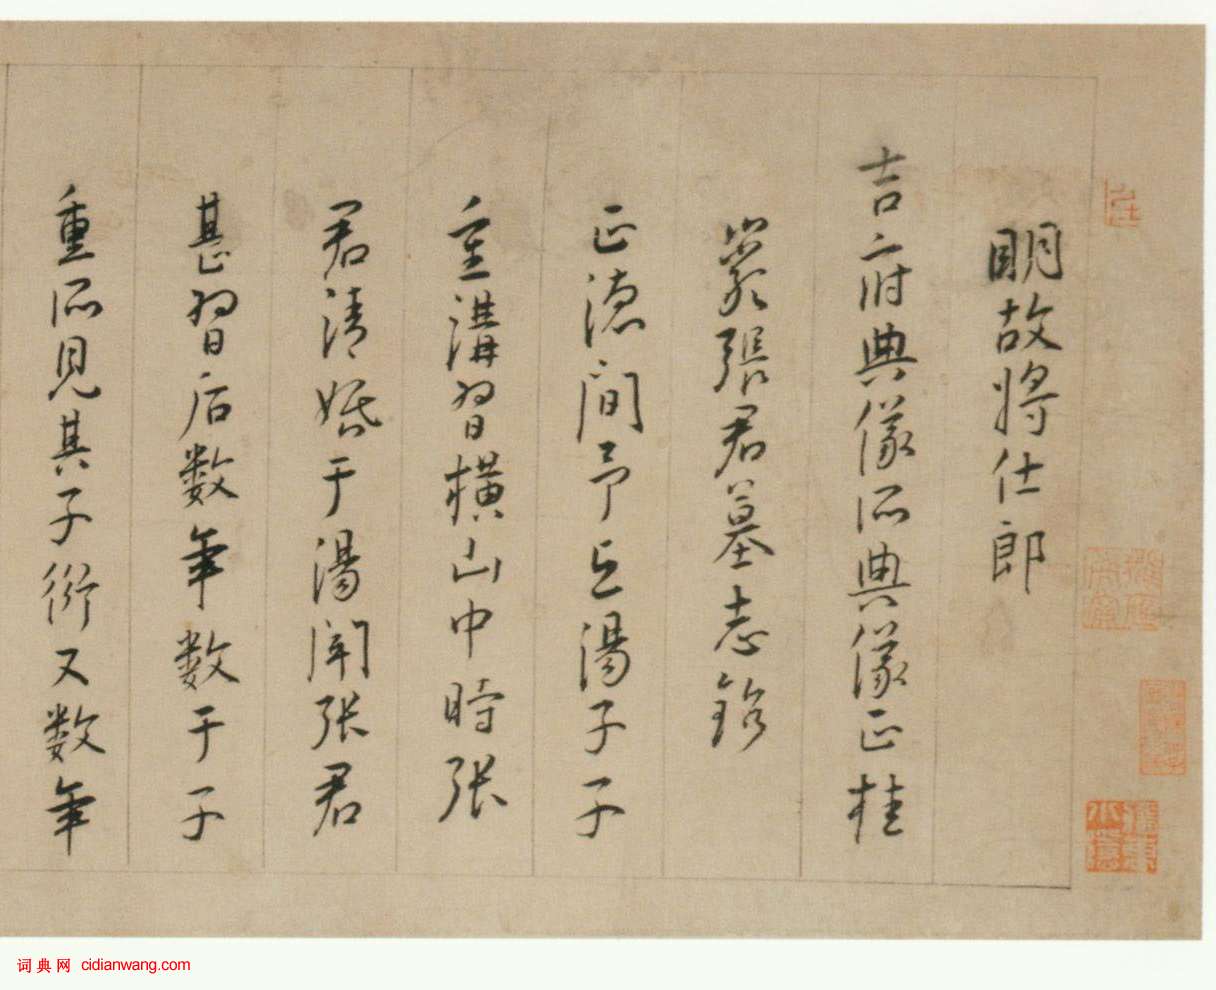 明故將仕郎
吉府典儀所典儀正桂
巖張君墓志銘
正德間予与湯子子
重講習橫山中時張
君請婚于湯聞張君
甚習后数年数于子
重所見其子衍又数年
词典网 cidianwang.com